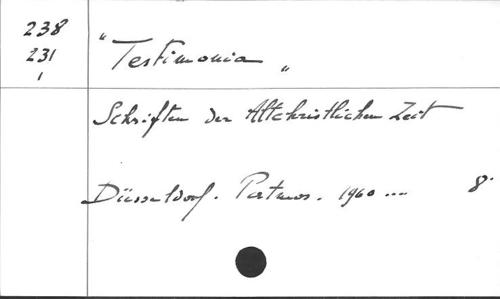 238
231
1
"Testimonia"
Schriften der Altchristlichen Zeit
Düsseldorf. Patmos. 1960 ... 8°